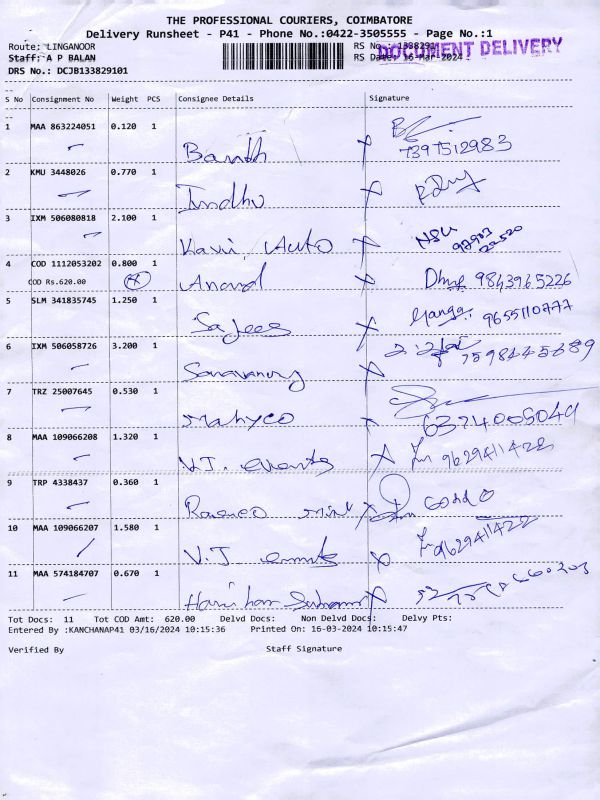 THE PROFESSIONAL COURIERS, COIMBATORE
Delivery Runsheet - P41 - Phone No.:0422-3505555 - Page No.:1
Route: LINGANOOR RS No.: 133829101
DOCUMENT DELIVERY
Staff: A P BALAN RS Date: 16-Mar-2024
DRS No.: DCJB133829101
S No Consignment No Weight PCS Consignee Details Signature
1 MAA 863224051 0.120 1
7397512983
2 KMU 3448026 0.770 1
Indhu
3 IXM 506080818 2.100 1
Kavi, Auto NSU
4 COD 1112053202 0.800 1
COD Rs.620.00 Anand 9843965226
5 SLM 341835745 1.250 1
Sajees Ganga 9655110777
6 IXM 506058726 3.200 1
7598445689
7 TRZ 25007645 0.530 1
Mahyco 6374005049
8 MAA 109066208 1.320 1
V.J. events 9629411422
9 TRP 4338437 0.360 1
10 MAA 109066207 1.580 1
V.J. 9629411422
11 MAA 574184707 0.670 1
Tot Docs: 11 Tot COD Amt: 620.00 Delvd Docs: Non Delvd Docs: Delvy Pts:
Entered By :KANCHANAP41 03/16/2024 10:15:36 Printed On: 16-03-2024 10:15:47
Verified By Staff Signature